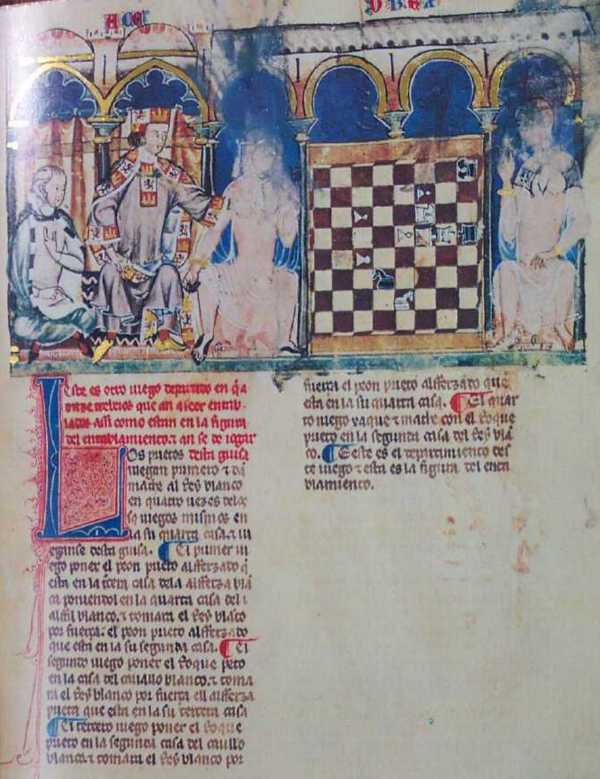 Este es otro iuego departido en q̃ a
onze trebeios que an a seer entab
lados assi como estan en la figura
del entablamiento. & an se de iogar
Los prietos desta guisa
iuegan primero & dã
mathe al Rey blanco
en quatro uezes delos
sus iuegos mismos en
la su quarta casa. & iu
eganse desta guisa. El primer iu
ego poner el peon prieto alfferzado q̃
esta en la tercera casa dela alfferza blã
ca poniendol en la quarta casa del
alfil blanco. & tomara el Rey blãco
por fuerça. el peon prieto alfferzado
que esta en la su segunda casa. El
segundo iuego poner el Roque prieto
en la casa del cauallo blanco. & toma
ra el Rey blanco por fuerça ell alfferza
prieta que esta en la su tercera casa
El tercero iuego poner el Roque
prieto en la segunda casa del cauallo
blanco. & tomara el Rey blanco por
fuerça el peon prieto alfferzado que
esta en la su quarta casa. El quar
to iuego xaque & mathe con el Roque
prieto en la segunda casa del Rey blã
co. & este es el departimiento des
te iuego & esta es la figura del enta
blamiento.